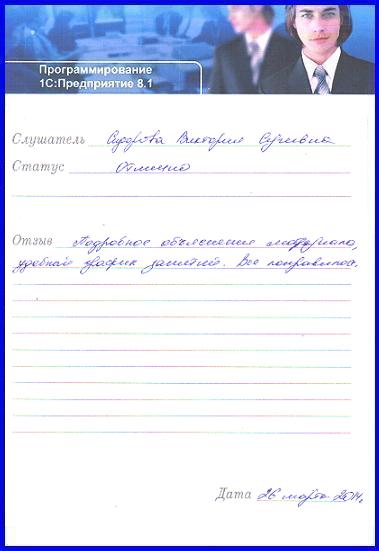 Программирование
1С:Предприятие 8.1
Слушатель Сидорова Виктория
Статус Отлично
Отзыв Подробное объяснение материала,
удобный график занятий. Все понравилось.
Дата 26 марта 2014г.